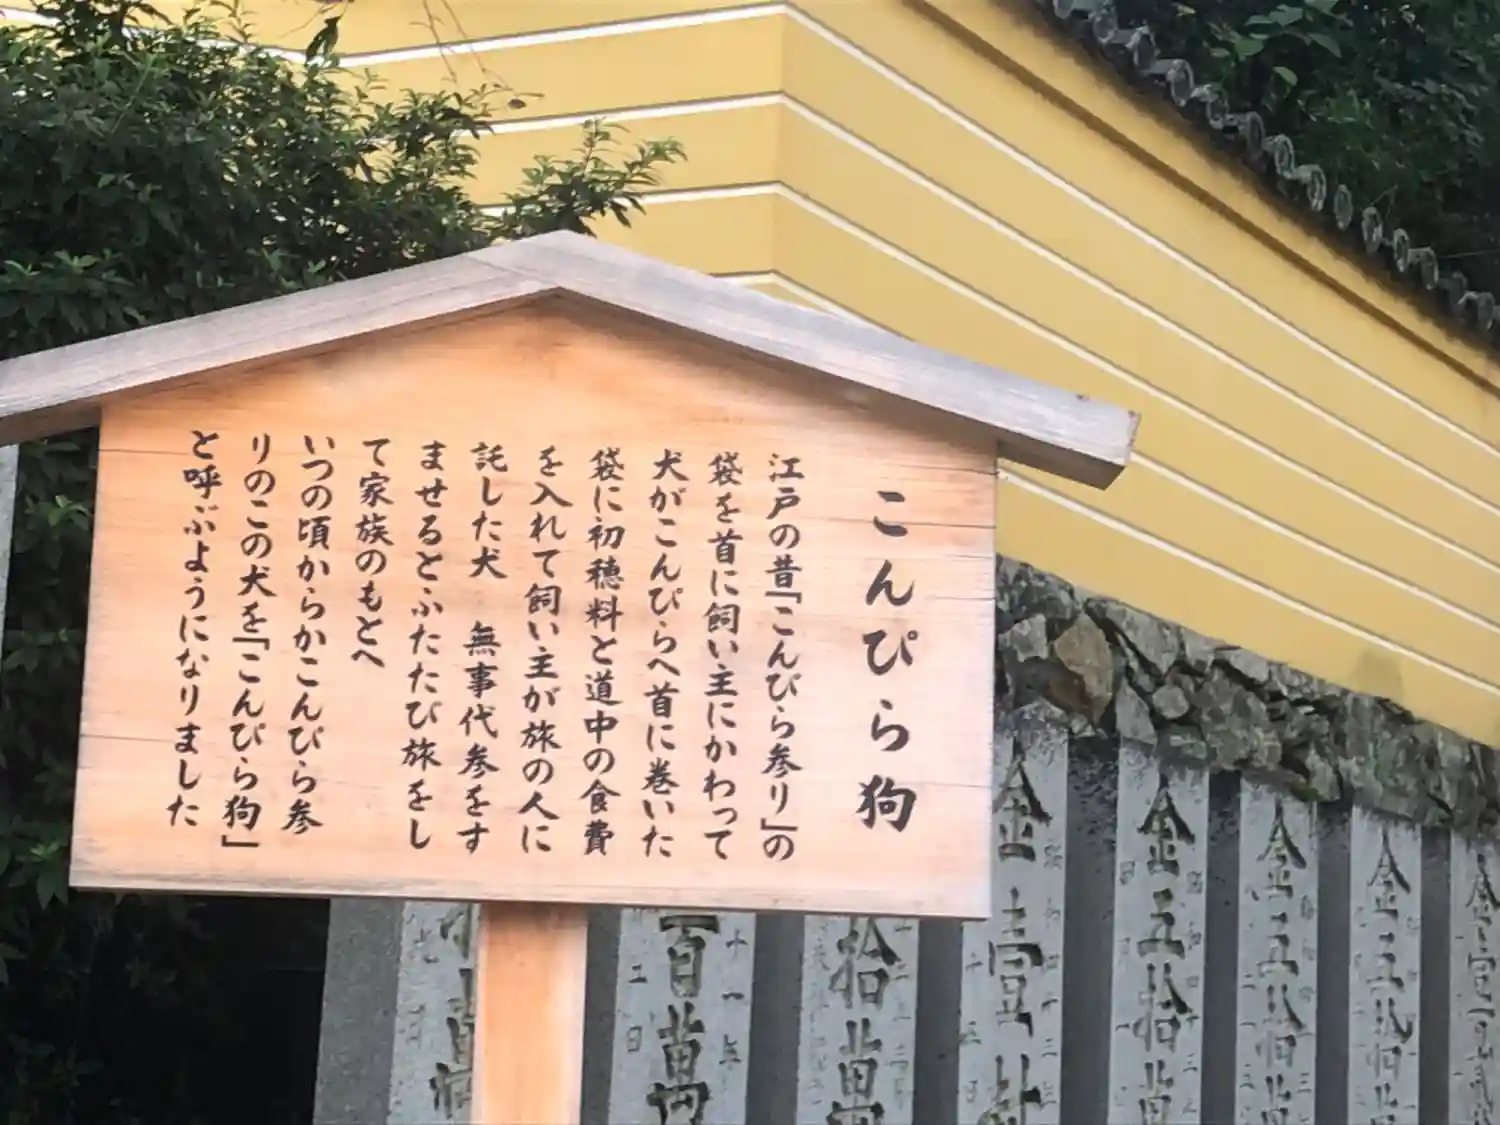 こんぴら狗
江戸の昔「こんぴら参り」の
袋を首に飼い主にかわって
犬がこんぴらへ首に巻いた
袋に初穂料と道中の食費
を入れて飼い主が旅の人に
託した犬　無事代参をす
ませるとふたたび旅をし
て家族のもとへ
いつの頃からかこんぴら参
りのこの犬を「こんぴら狗」
と呼ぶようになりました
金五拾萬
金五拾萬
金五拾
金壹
拾萬
百萬円